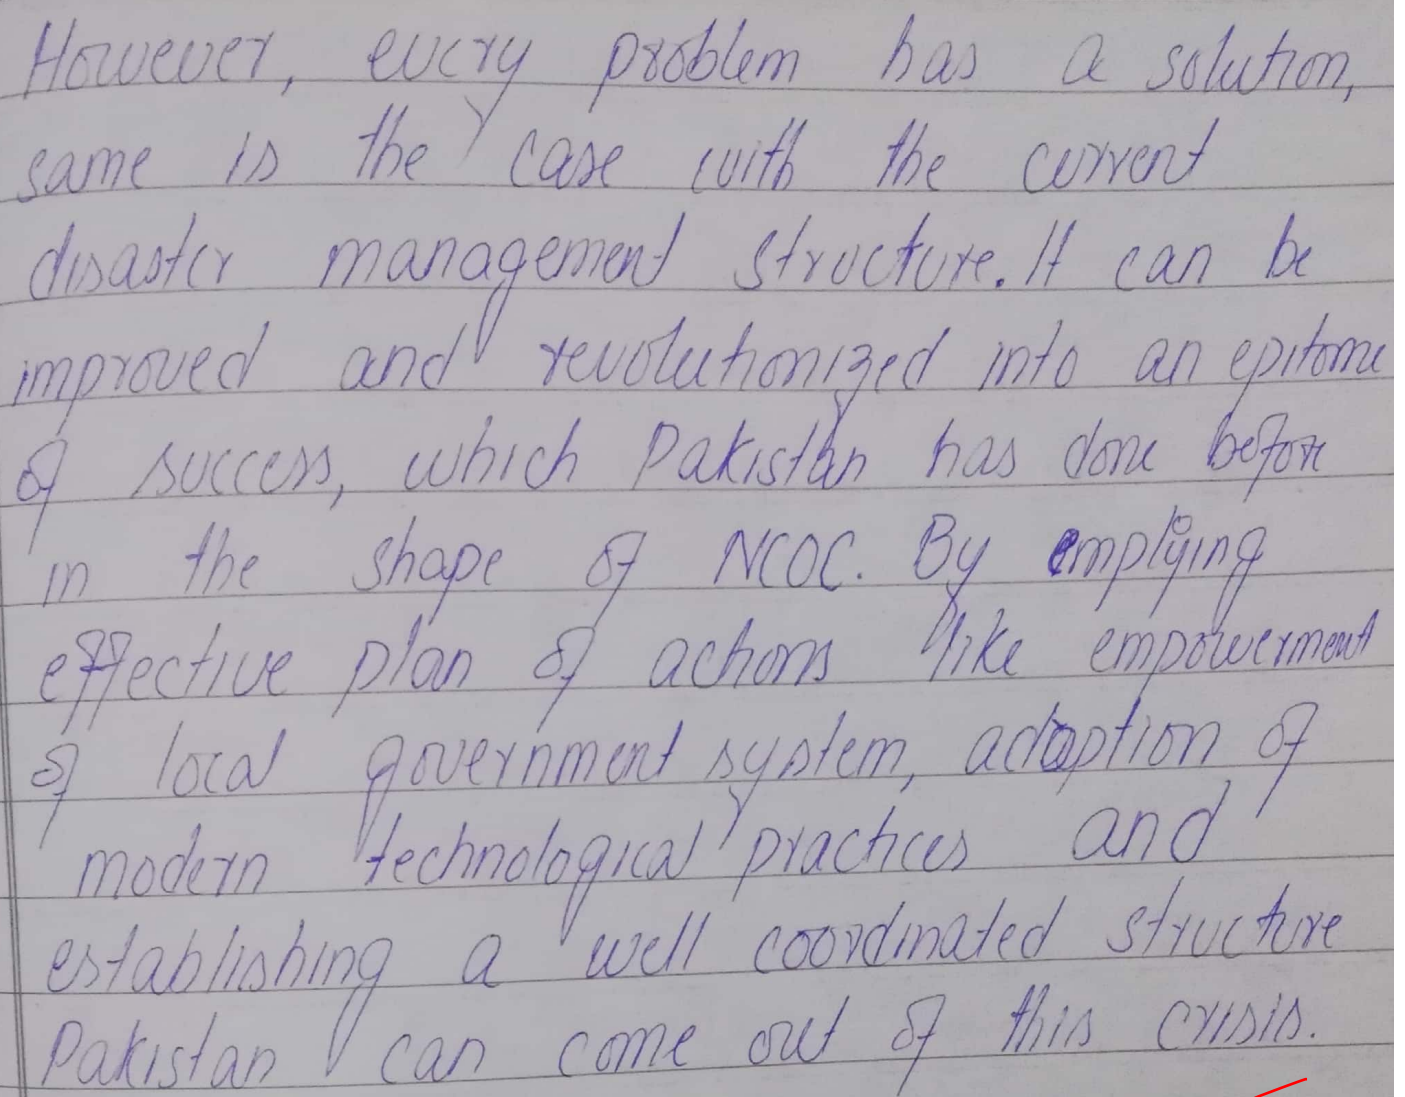 However, every problem has a solution,
same is the case with the current
disaster management structure. It can be
improved and revolutionized into an epitome
of success, which Pakistan has done before
in the shape of NCOC. By emplying
effective plan of actions like empowerment
of local government system, adoption of
modern technological practices and
establishing a well coordinated structure
Pakistan can come out of this crisis.